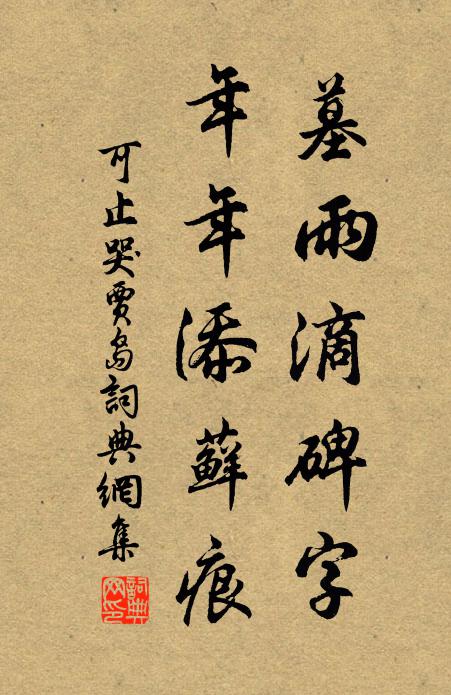 墓雨滴碑字
年年添蘚痕
可止哭賈島詞典網集
詞典網印